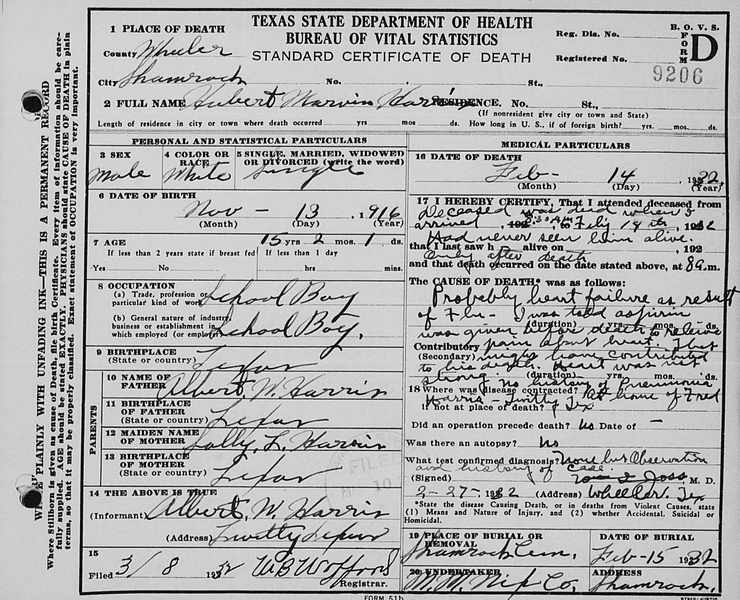 TEXAS STATE DEPARTMENT OF HEALTH
BUREAU OF VITAL STATISTICS
STANDARD CERTIFICATE OF DEATH
Reg. Dis. No.
Registered No.
B. O. V. S.
FORM D
9206
1 PLACE OF DEATH
County Wheeler
City Shamrock No. St.,
2 FULL NAME Hubert Marvin Harris RESIDENCE. No. St.,
(If nonresident give city or town and State)
Length of residence in city or town where death occurred yrs. mos. ds. How long in U. S., if of foreign birth? yrs. mos. ds.
WRITE PLAINLY WITH UNFADING INK—THIS IS A PERMANENT RECORD
Where Stillborn is given as cause of Death, file birth Certificate. Every item of information should be carefully supplied. AGE should be stated EXACTLY. PHYSICIANS should state CAUSE OF DEATH in plain terms, so that it may be properly classified. Exact statement of OCCUPATION is very important.
PERSONAL AND STATISTICAL PARTICULARS
3 SEX
Male
4 COLOR OR RACE
White
5 SINGLE, MARRIED, WIDOWED OR DIVORCED (write the word)
Single
6 DATE OF BIRTH
Nov - 13, 1916
(Month) (Day) (Year)
7 AGE 15 yrs. 2 mos. 1 ds.
If less than 2 years state if breast fed
If less than 1 day
Yes No hrs. min.
8 OCCUPATION
(a) Trade, profession or particular kind of work School Boy
(b) General nature of industry, business or establishment in which employed (or employer) School Boy.
9 BIRTHPLACE
(State or country) Texas
PARENTS
10 NAME OF FATHER Albert W. Harris
11 BIRTHPLACE OF FATHER
(State or country) Texas
12 MAIDEN NAME OF MOTHER Sally L. Harris
13 BIRTHPLACE OF MOTHER
(State or country) Texas
FILED
10
14 THE ABOVE IS TRUE
(Informant) Albert W. Harris
(Address) Twitty Texas
15
Filed 3/8 1932 W B Wofford
Registrar.
MEDICAL PARTICULARS
16 DATE OF DEATH
Feb - 14, 1932
(Month) (Day) (Year)
17 I HEREBY CERTIFY, That I attended deceased from
Deceased was dead when I
arrived, to Feb 14th 1932
Had never seen him alive.
that I last saw h alive on , 192
Only after death
and that death occurred on the date stated above, at 8 a.m.
The CAUSE OF DEATH* was as follows:
Probably heart failure as result
of Flu - I was told aspirin
(duration) yrs. mos. ds.
was given before death to relieve
Contributory pain about heart. That
(Secondary) might have contributed
to his death. Heart was not
strong. No history of Pneumonia
(duration) yrs. mos. ds.
18 Where was disease contracted? At home of Fred
Harris - Twitty Tex
if not at place of death?
Did an operation precede death? No Date of -
Was there an autopsy? No
What test confirmed diagnosis? None but Observation
and history of case.
(Signed) M. D.
2-27-1932 (Address) Wheeler, Tex
*State the disease Causing Death, or in deaths from Violent Causes, state (1) Means and Nature of Injury, and (2) whether Accidental, Suicidal or Homicidal.
19 PLACE OF BURIAL OR REMOVAL
Shamrock Cem.
DATE OF BURIAL
Feb-15 1932
20 UNDERTAKER
M. W. Nix Co.
ADDRESS
Shamrock.
FORM 51b